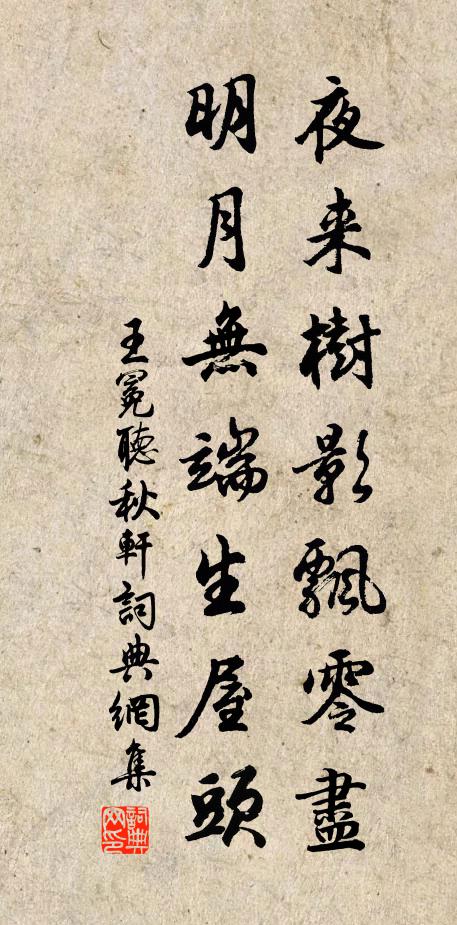 夜来樹影飄零盡
明月無端生屋頭
王冕聽秋軒詞典網集
詞典網印